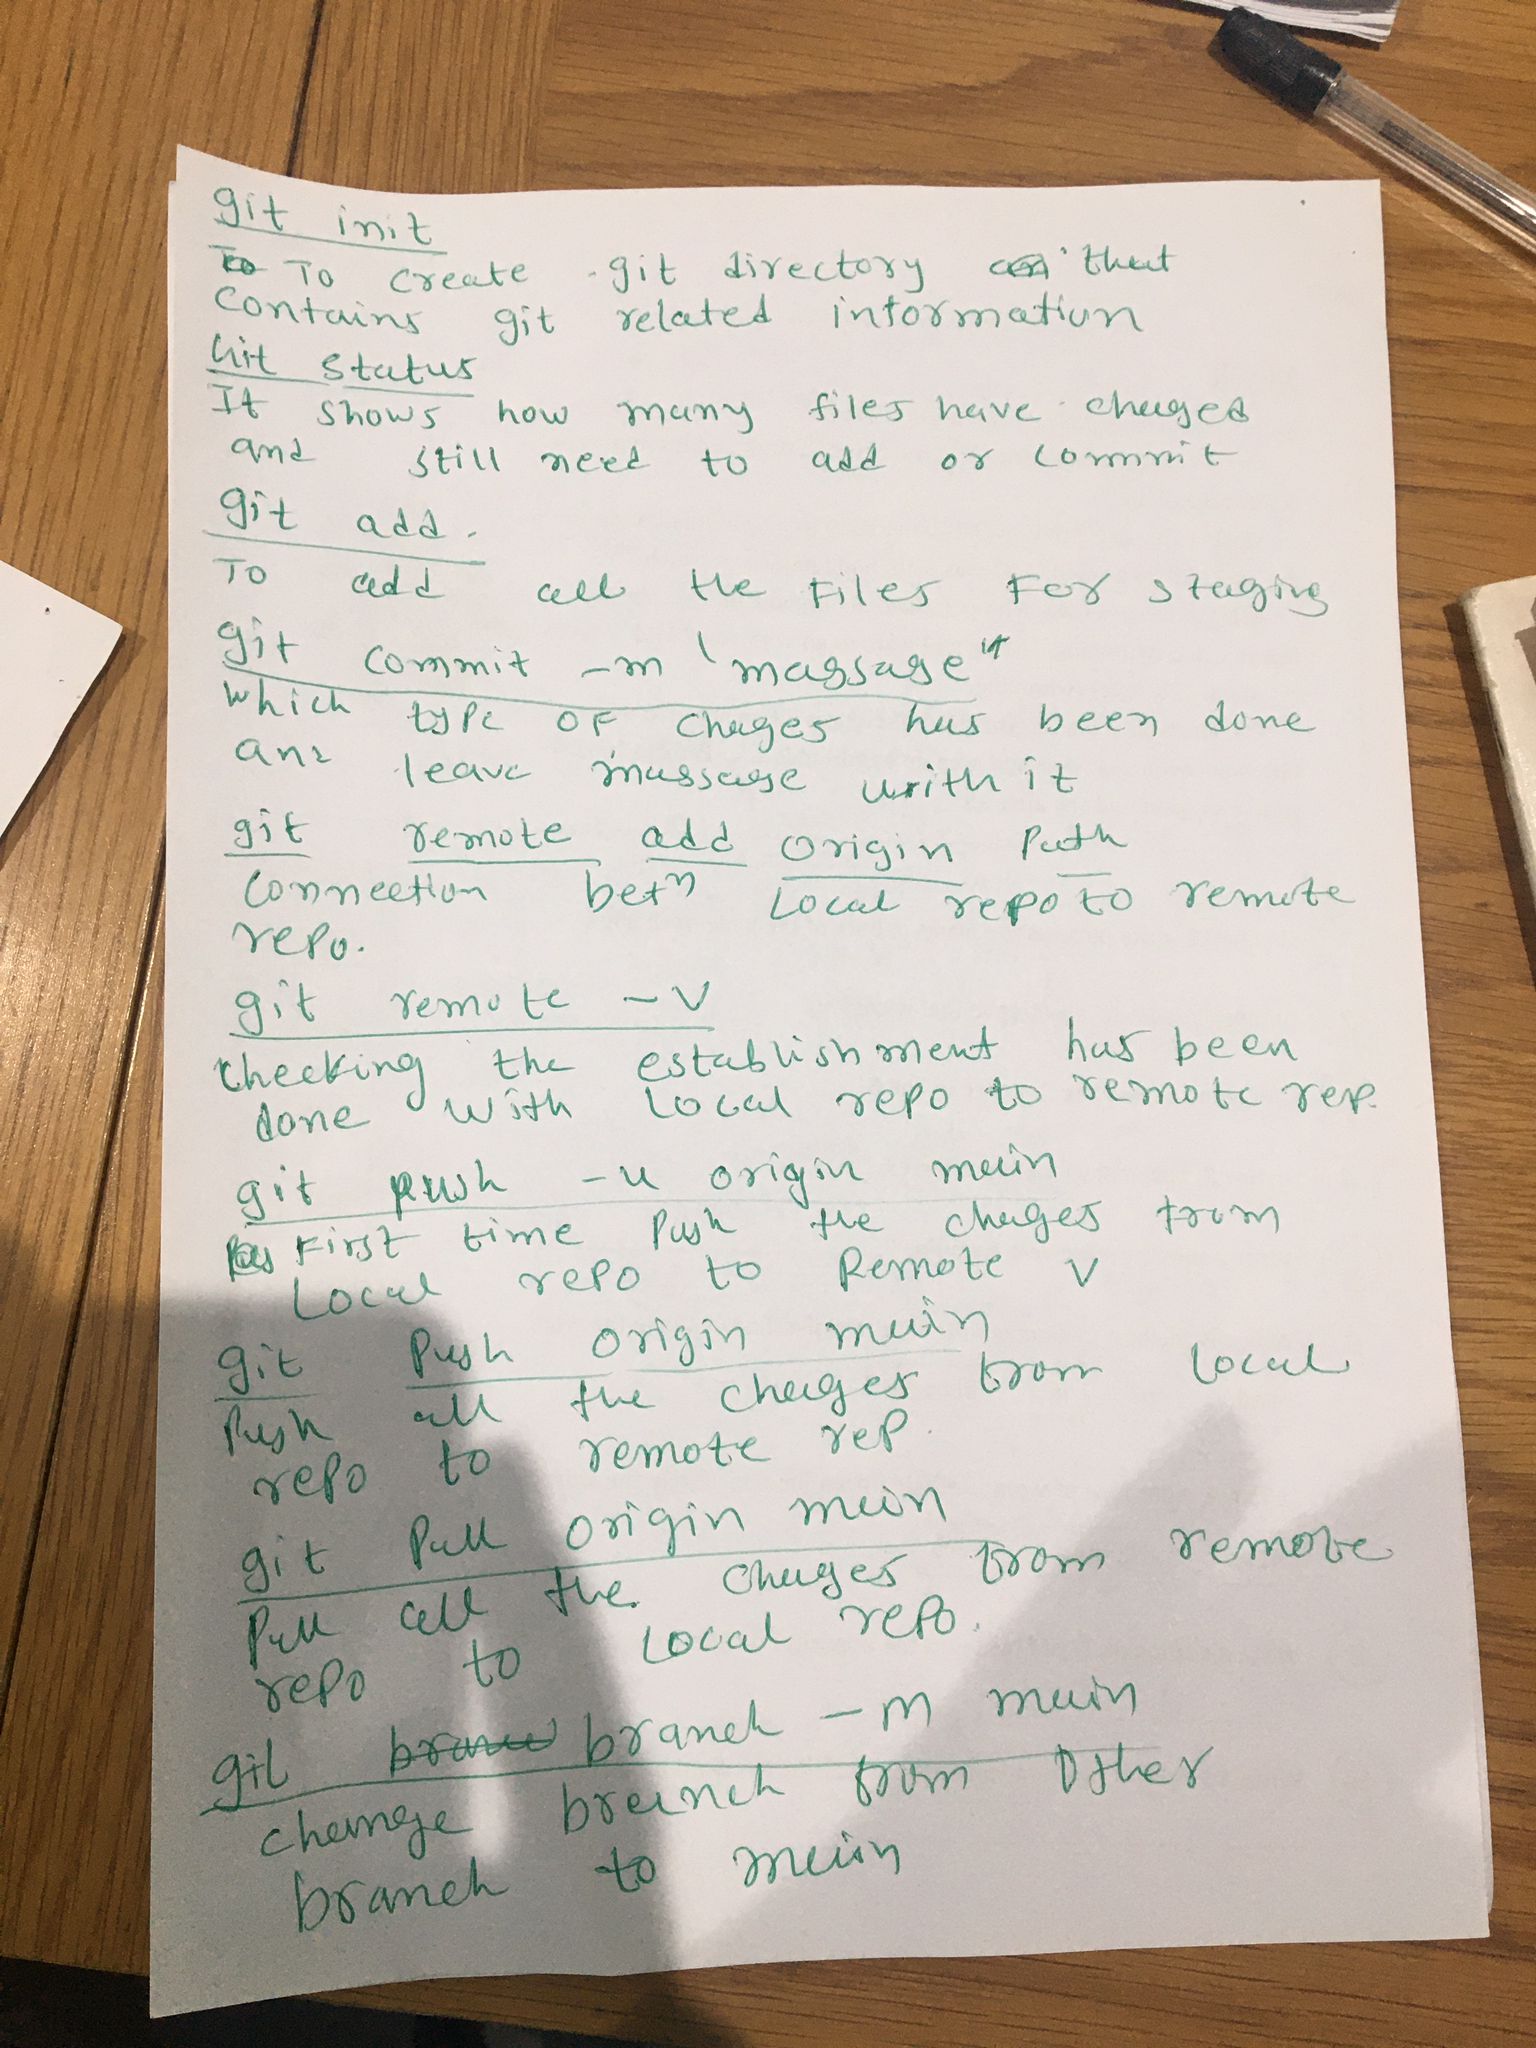 git init
To To create .git directory that
contains git related information
Git status
It shows how many files have chaged
and still need to add or commit
git add .
To add all the files for staging
git commit -m "massage"
which type of chages has been done
and leave massage with it
git remote add origin Path
connection betn Local repo to remote
repo.
git remote -v
checking the establishment has been
done with Local repo to remote rep.
git push -u origin main
First time push the chages from
Local repo to Remote v
git Push origin main
Push all the chages from Local
repo to remote rep.
git Pull origin main
Pull all the chages from remote
repo to Local repo.
git branch -M main
change branch from other
branch to main